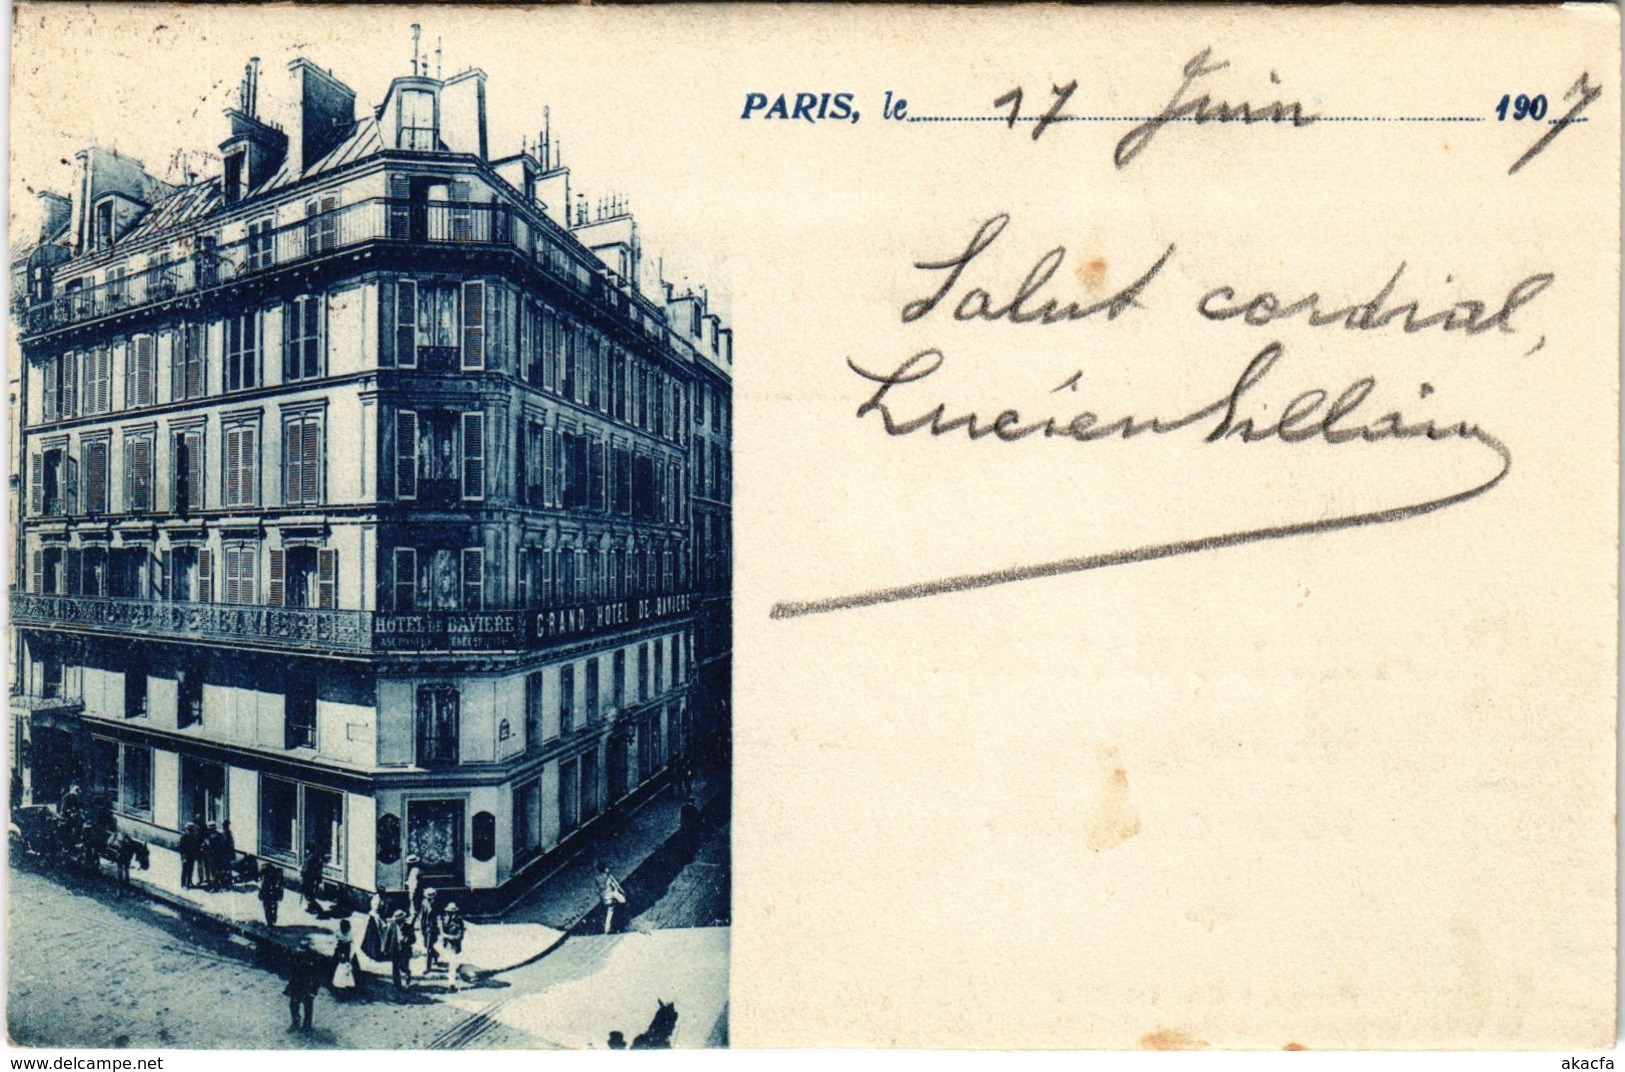 PARIS, le 17 Juin 1907
Salut cordial,
Lucien
HÔTEL DE BAVIÈRE
ASCENSEUR ÉLECTRICITÉ
GRAND HOTEL DE BAVIERE
GRAND HOTEL DE BAVIERE
www.delcampe.net
akacfa